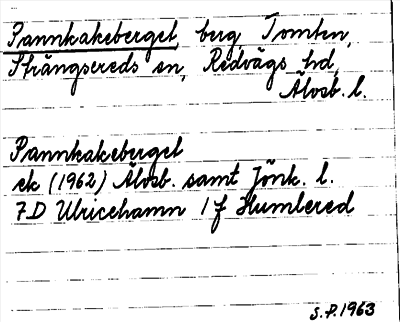 Pannkakeberget, berg Tomten,
Strängsereds sn, Redvägs hd,
Älvsb. l.
Pannkakeberget
ek (1962) Älvsb. samt Jönk. l.
7D Ulricehamn 1f Humlered
S.P. 1963